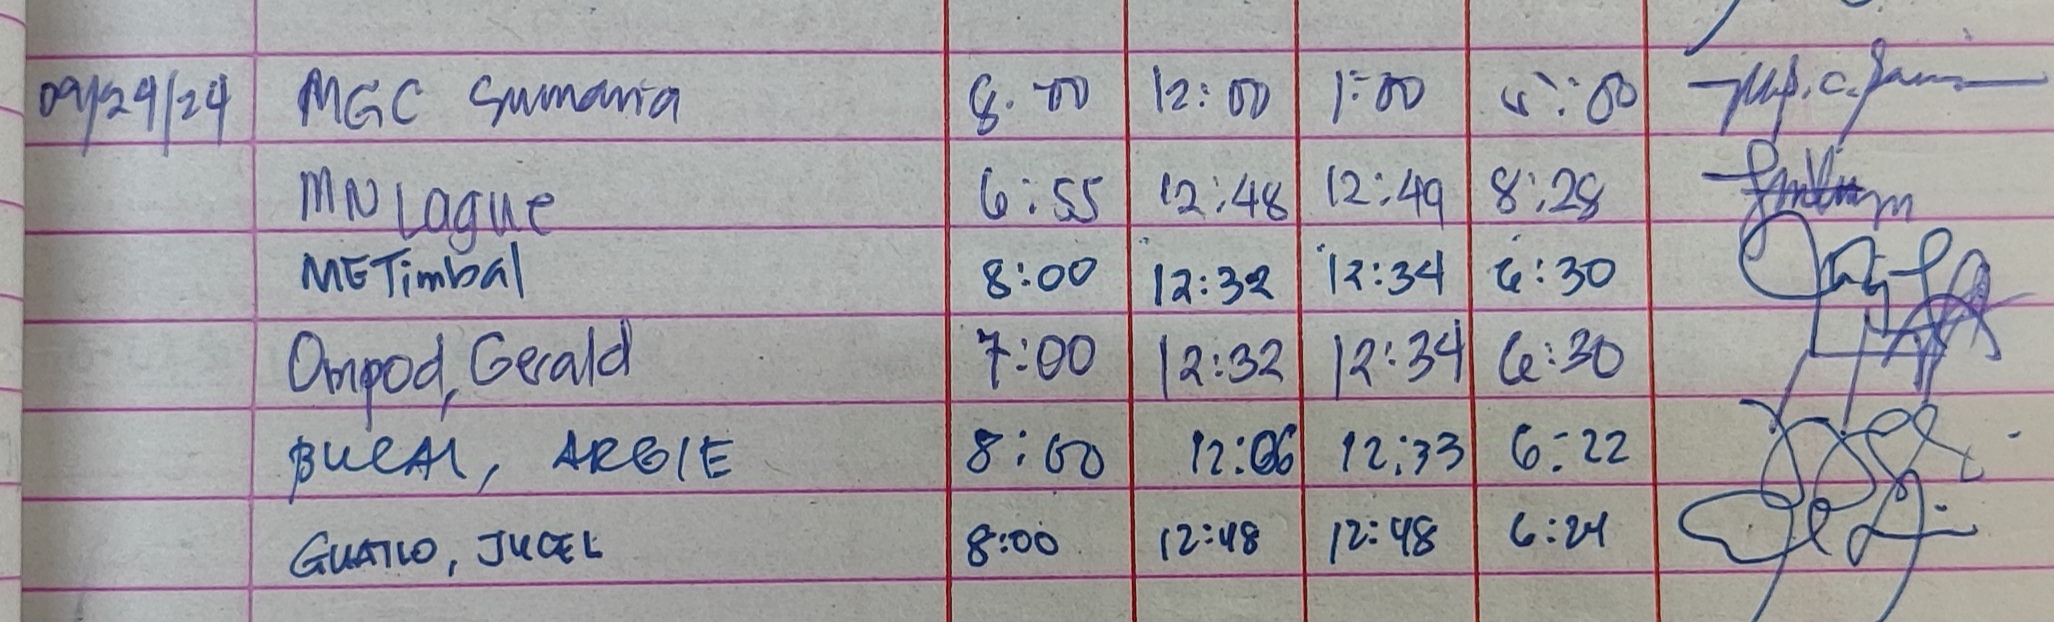 09/24/24 MGC Sumania 8:00 12:00 1:00 5:00
MN Lague 6:55 12:48 12:49 8:28
METimbal 8:00 12:32 12:34 6:30
Ompod, Gerald 7:00 12:32 12:34 6:30
BUCAL, ARGIE 8:00 12:06 12:33 6:22
GUATLO, JUCEL 8:00 12:48 12:48 6:24